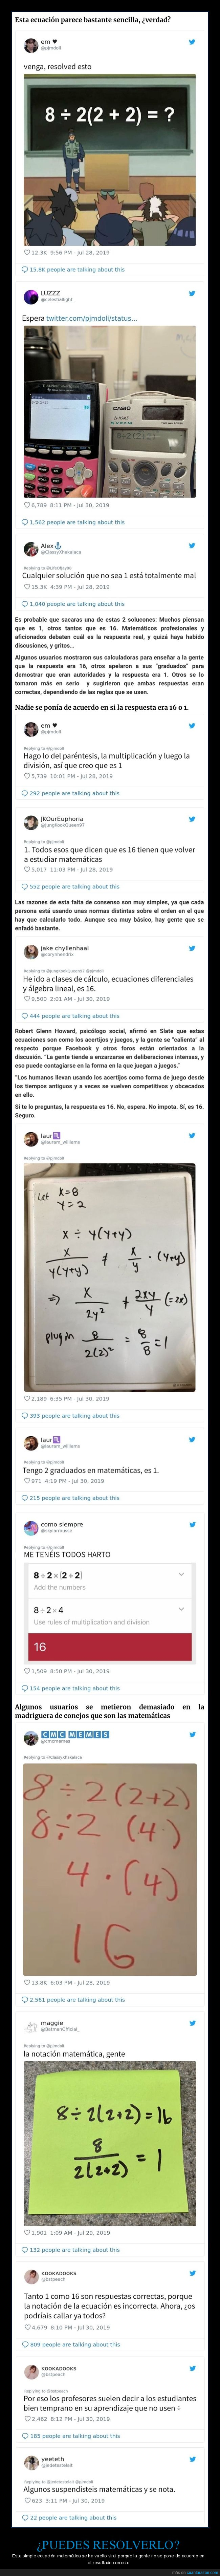 Esta ecuación parece bastante sencilla, ¿verdad?
em ♥
@pjmdoll
venga, resolved esto
8 ÷ 2(2 + 2) = ?
12.3K 9:56 PM - Jul 28, 2019
15.8K people are talking about this
LUZZZ
@celestiallight_
Espera twitter.com/pjmdoll/status…
CASIO
6,789 8:11 PM - Jul 30, 2019
1,562 people are talking about this
Alex
@ClassyXhakalaca
Cualquier solución que no sea 1 está totalmente mal
15.3K 4:39 PM - Jul 28, 2019
1,040 people are talking about this
Es probable que sacaras una de estas 2 soluciones: Muchos piensan
que es 1, otros tantos que es 16. Matemáticos profesionales y
aficionados debaten cuál es la respuesta real, y quizá haya habido
discusiones, y gritos...
Algunos usuarios mostraron sus calculadoras para enseñar a la gente
que la respuesta era 16, otros apelaron a sus "graduados" para
demostrar que eran autoridades y la respuesta era 1. Otros se lo
tomaron más en serio y sugirieron que ambas respuestas eran
correctas, dependiendo de las reglas que se usen.
Nadie se ponía de acuerdo en si la respuesta era 16 o 1.
em ♥
@pjmdoll
Replying to @pjmdoll
Hago lo del paréntesis, la multiplicación y luego la
división, así que creo que es 1
5,739 10:01 PM - Jul 28, 2019
292 people are talking about this
JKOurEuphoria
@JungKookQueen97
Replying to @pjmdoll
1. Todos esos que dicen que es 16 tienen que volver
a estudiar matemáticas
5,017 11:03 PM - Jul 28, 2019
552 people are talking about this
Las razones de esta falta de consenso son muy simples, ya que cada
persona está usando unas normas distintas sobre el orden en el que
hay que calcularlo todo. Aunque sea muy básico, hay gente que se
enfadó bastante.
jake chyllenhaal
Replying to @JungKookQueen97 @pjmdoll
He ido a clases de cálculo, ecuaciones diferenciales
y álgebra lineal, es 16.
9,500 2:01 AM - Jul 30, 2019
444 people are talking about this
Robert Glenn Howard, psicólogo social, afirmó en Slate que estas
discusiones no ocurren con frecuencia, y que la gente se "calienta" al
respecto porque Facebook y otros foros están orientados a la
discusión. "Los humanos tienden a crear juegos en entornos digitales, y
eso puede contagiarse en la forma en la que juegan a juegos."
"Los humanos llevan usando los acertijos como forma de juego desde
los tiempos antiguos y a veces se vuelven competitivos y obcecados
en ello.
Si te lo preguntas, la respuesta es 16. No, espera. No impota. Sí, es 16.
Seguro.
laur
@lauram_williams
Replying to @pjmdoll
Let x=8
y=2
x ÷ y(y+y)
x/y(y+y) ≠ x/y · (y+y)
⇒ x/2y² ≠ 2xy/y (=2x)
plug in 8/2(2)² = 8/8 = 1
2,189 6:35 PM - Jul 30, 2019
393 people are talking about this
laur
@lauram_williams
Replying to @pjmdoll
Tengo 2 graduados en matemáticas, es 1.
971 4:19 PM - Jul 30, 2019
215 people are talking about this
como siempre
Replying to @pjmdoll
ME TENÉIS TODOS HARTO
8 ÷ 2 × (2 + 2)
Add the numbers
8 ÷ 2 × 4
Use rules of multiplication and division
16
1,509 8:50 PM - Jul 30, 2019
154 people are talking about this
Algunos usuarios se metieron demasiado en la
madriguera de conejos que son las matemáticas
CMC MEMES
@cmcmemes
Replying to @ClassyXhakalaca
8 ÷ 2 (2+2)
8 ÷ 2 (4)
4 · (4)
16
13.8K 6:03 PM - Jul 28, 2019
2,561 people are talking about this
maggie
@BatmanOfficial_
Replying to @pjmdoll
la notación matemática, gente
8÷2(2+2)=16
8/2(2+2) = 1
1,901 1:09 AM - Jul 29, 2019
132 people are talking about this
KOOKADOOKS
@bitpeach
Tanto 1 como 16 son respuestas correctas, porque
la notación de la ecuación es incorrecta. Ahora, ¿os
podríais callar ya todos?
4,679 8:10 PM - Jul 30, 2019
809 people are talking about this
KOOKADOOKS
@bitpeach
Replying to @bitpeach
Por eso los profesores suelen decir a los estudiantes
bien temprano en su aprendizaje que no usen ÷
2,462 8:12 PM - Jul 30, 2019
185 people are talking about this
yeeteth
Algunos suspendisteis matemáticas y se nota.
623 3:11 PM - Jul 30, 2019
22 people are talking about this
¿PUEDES RESOLVERLO?
Esta simple ecuación matemática se ha vuelto viral porque la gente no se pone de acuerdo en
el resultado correcto